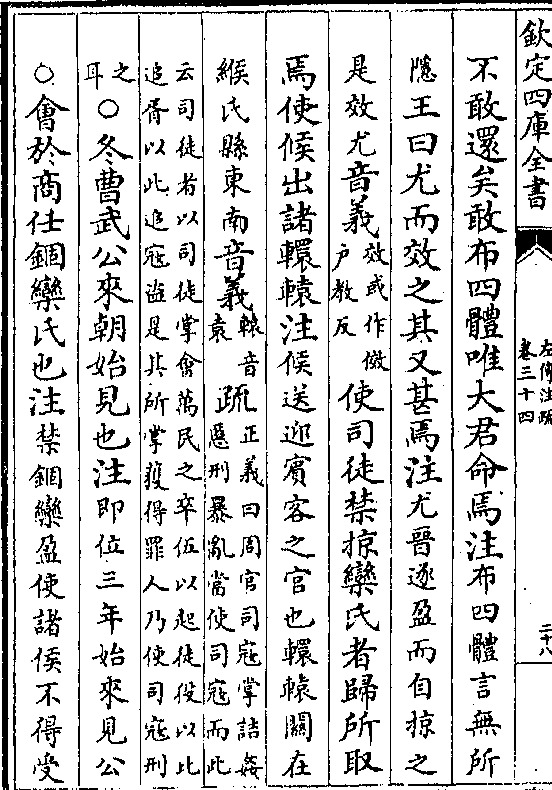 欽定四庫全書
左傳注疏
卷三十四
二十八
不敢還矣敢布四體唯大君命焉注布四體言無所
隱王曰尤而效之其又甚焉注尤晉逐盈而自掠之
是效尤音義效或作傚户教反使司徒禁掠欒氏者歸所取
焉使候出諸轘轅注候送迎賓客之官也轘轅關在
緱氏縣東南音義轅音袁疏正義曰周官司寇掌詰姦慝刑暴亂當使司寇而此
云司徒者以司徒掌會萬民之卒伍以起徒役以比追胥以此追寇盜是其所掌獲得罪人乃使司寇刑
之耳○冬曹武公來朝始見也注即位三年始來見公
○會於商任錮欒氏也注禁錮欒盈使諸侯不得受